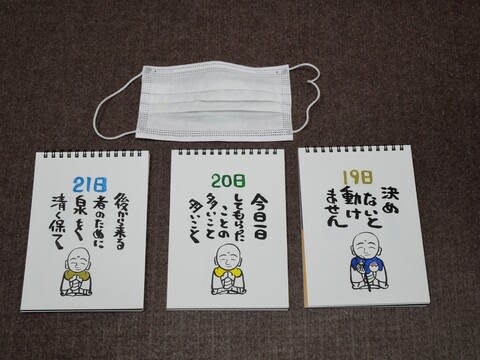 21日
後から来る
者のために
泉を
清く保て
20日
今日一日
してもらった
ことの
多いこと
多いこと
19日
決め
ないと
動け
ません